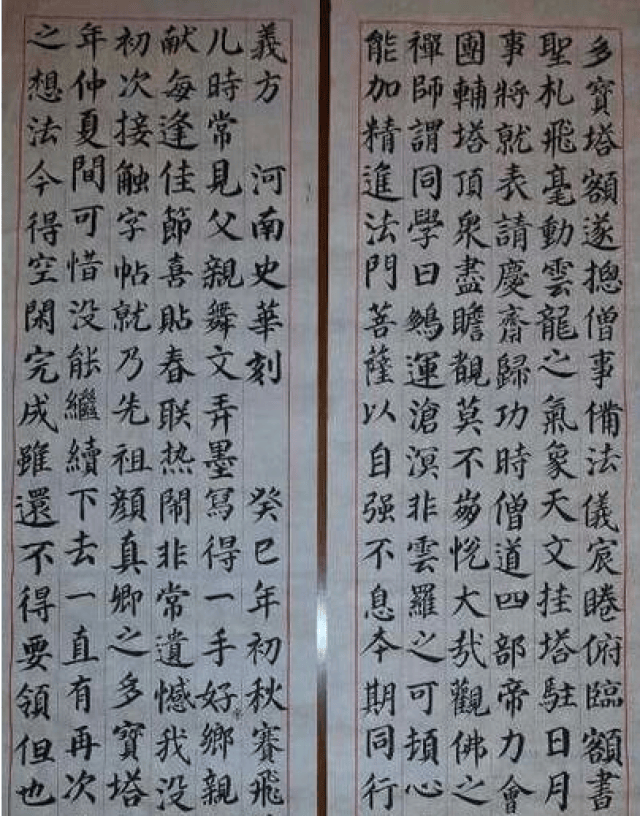 多寶塔額遂摠僧事備法儀宸睠俯臨額書
聖札飛毫動雲龍之氣象天文挂塔駐日月
事將就表請慶齋歸功時僧道四部帝力會
團輔塔頂衆盡瞻覩莫不悅大哉觀佛之
禪師謂同學曰運滄溟非雲羅之可頓心
能加精進法門菩薩以自强不息本期同行
義方 河南史華刻 癸巳年初秋賽飛
儿時常見父親舞文弄墨寫得一手好鄉親
献每逢佳節喜貼春联热鬧非常遺憾我没
初次接触字帖就乃先祖顔真卿之多寶塔
年仲夏間可惜没能繼續下去一直有再次
之想法今得空閑完成雖還不得要領但也